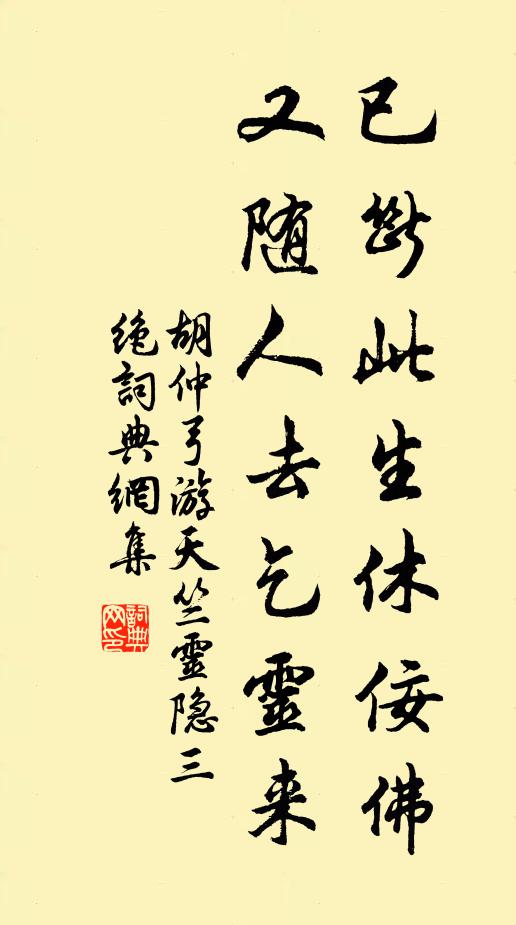 已斷此生休佞佛
又随人去乞靈来
胡仲弓游天竺靈隐三
绝詞典網集
詞典
网印